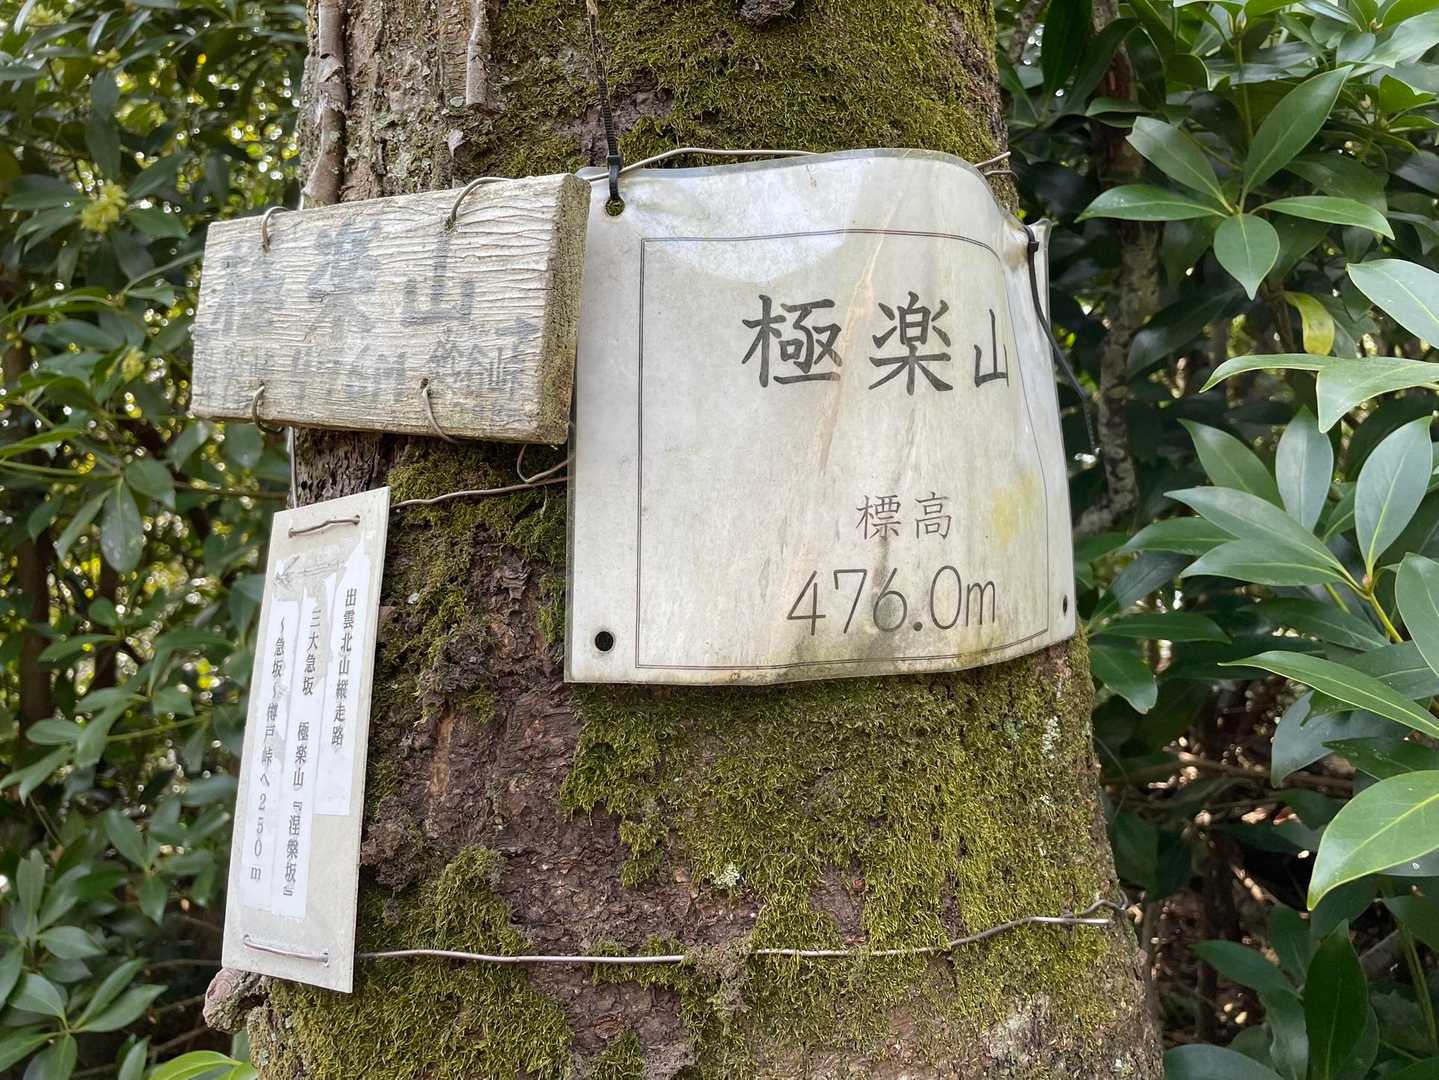 極楽山
極楽山
標高
476.0m
出雲北山縦走路
三大急坂 極楽山『涅槃坂』
～急坂～樽戸峠へ250m